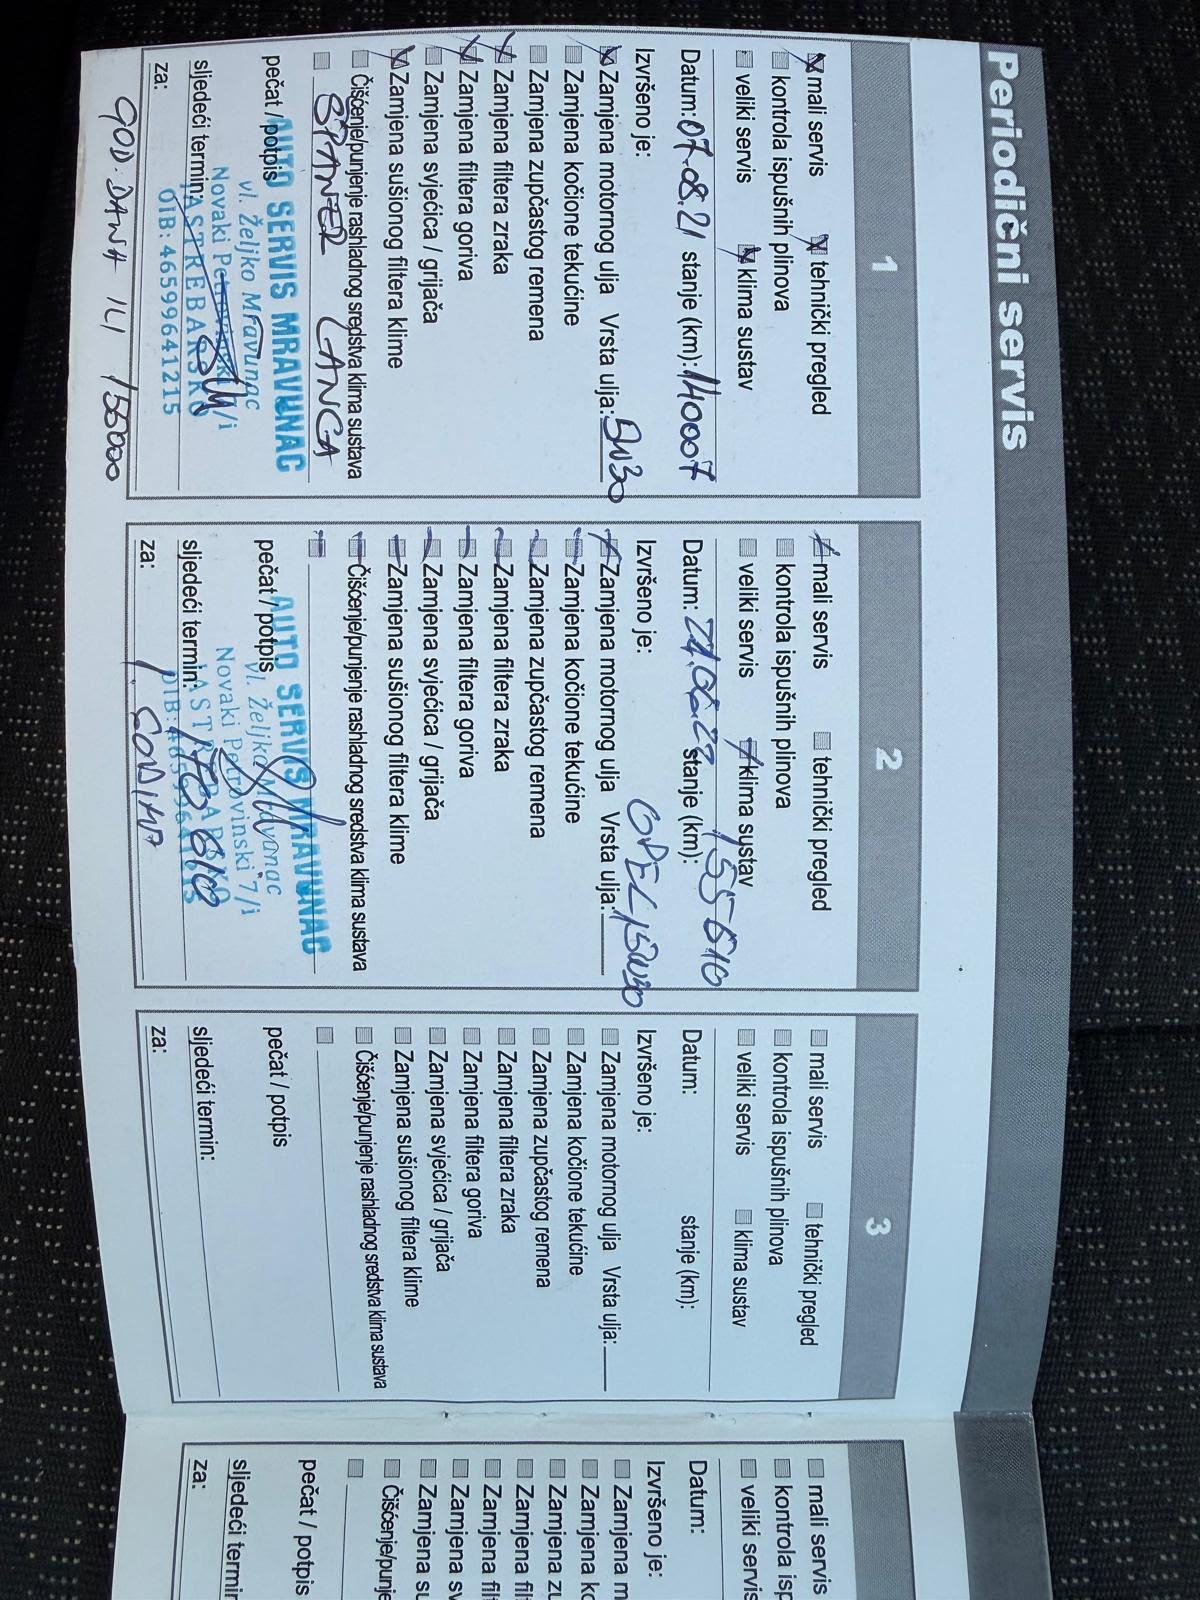 Periodični servis
1
mali servis tehnički pregled
kontrola ispušnih plinova
veliki servis klima sustav
Datum: 07.08.21 stanje (km): 140007
Izvršeno je:
Zamjena motornog ulja Vrsta ulja: 5W30
Zamjena kočione tekućine
Zamjena zupčastog remena
Zamjena filtera zraka
Zamjena filtera goriva
Zamjena svjećica / grijača
Zamjena sušionog filtera klime
Čišćenje/punjenje rashladnog sredstva klima sustava
ŠPANER LANCA
pečat / potpis
AUTO SERVIS MRAVUNAC
vl. Željko Mravunac
Novaki Petrovinski 7/i
JASTREBARSKO
OIB: 46599641215
sljedeći termin:
za:
GOD. DANA ILI 155000
2
mali servis tehnički pregled
kontrola ispušnih plinova
veliki servis klima sustav
Datum: stanje (km): 155610
Izvršeno je:
OPEL 5W30
Zamjena motornog ulja Vrsta ulja:
Zamjena kočione tekućine
Zamjena zupčastog remena
Zamjena filtera zraka
Zamjena filtera goriva
Zamjena svjećica / grijača
Zamjena sušionog filtera klime
Čišćenje/punjenje rashladnog sredstva klima sustava
pečat / potpis
AUTO SERVIS MRAVUNAC
vl. Željko Mravunac
Novaki Petrovinski 7/i
JASTREBARSKO
OIB:
sljedeći termin: 170 610
za: 1 GODINA
3
mali servis tehnički pregled
kontrola ispušnih plinova
veliki servis klima sustav
Datum: stanje (km):
Izvršeno je:
Zamjena motornog ulja Vrsta ulja:
Zamjena kočione tekućine
Zamjena zupčastog remena
Zamjena filtera zraka
Zamjena filtera goriva
Zamjena svjećica / grijača
Zamjena sušionog filtera klime
Čišćenje/punjenje rashladnog sredstva klima sustava
pečat / potpis
sljedeći termin:
za:
mali servis
kontrola isp
veliki servis
Datum:
Izvršeno je:
Zamjena m
Zamjena ko
Zamjena zu
Zamjena filt
Zamjena filt
Zamjena sv
Zamjena su
Čišćenje/punje
pečat / potpis
sljedeći termin
za: